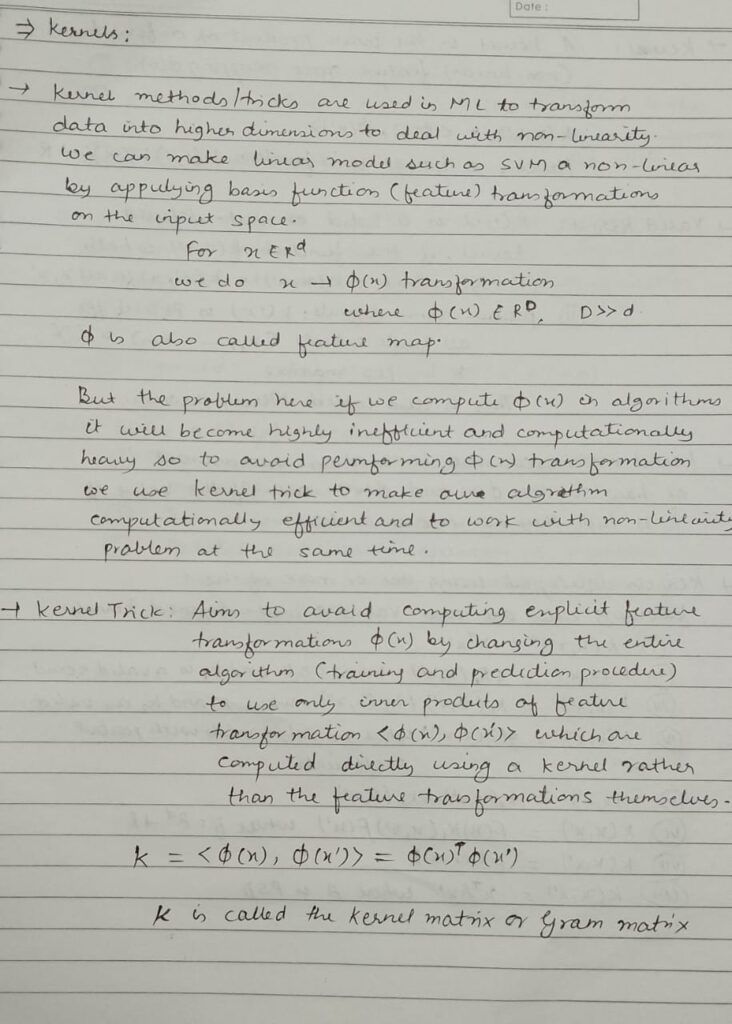 Date :
⇒ Kernels :
→ Kernel methods/tricks are used in ML to transform
data into higher dimensions to deal with non-linearity.
We can make linear model such as SVM a non-linear
by appulying basis function (feature) transformations
on the input space.
For x ∈ R^d
we do x → ϕ(x) transformation
where ϕ(x) ∈ R^D, D>>d.
ϕ is also called feature map.
But the problem here if we compute ϕ(x) in algorithms
it will become highly inefficient and computationally
heavy so to avoid permforming ϕ(x) transformation
we use kernel trick to make our algrethm
computationally efficient and to work with non-linearity
problem at the same time.
→ Kernel Trick : Aims to avoid computing explicit feature
transformations ϕ(x) by changing the entire
algorithm (training and prediction procedure)
to use only inner produts of feature
transformation <ϕ(x), ϕ(x')> which are
computed directly using a kernel rather
than the feature transformations themselves.
K = <ϕ(x), ϕ(x')> = ϕ(x)^T ϕ(x')
K is called the kernel matrix or Gram matrix